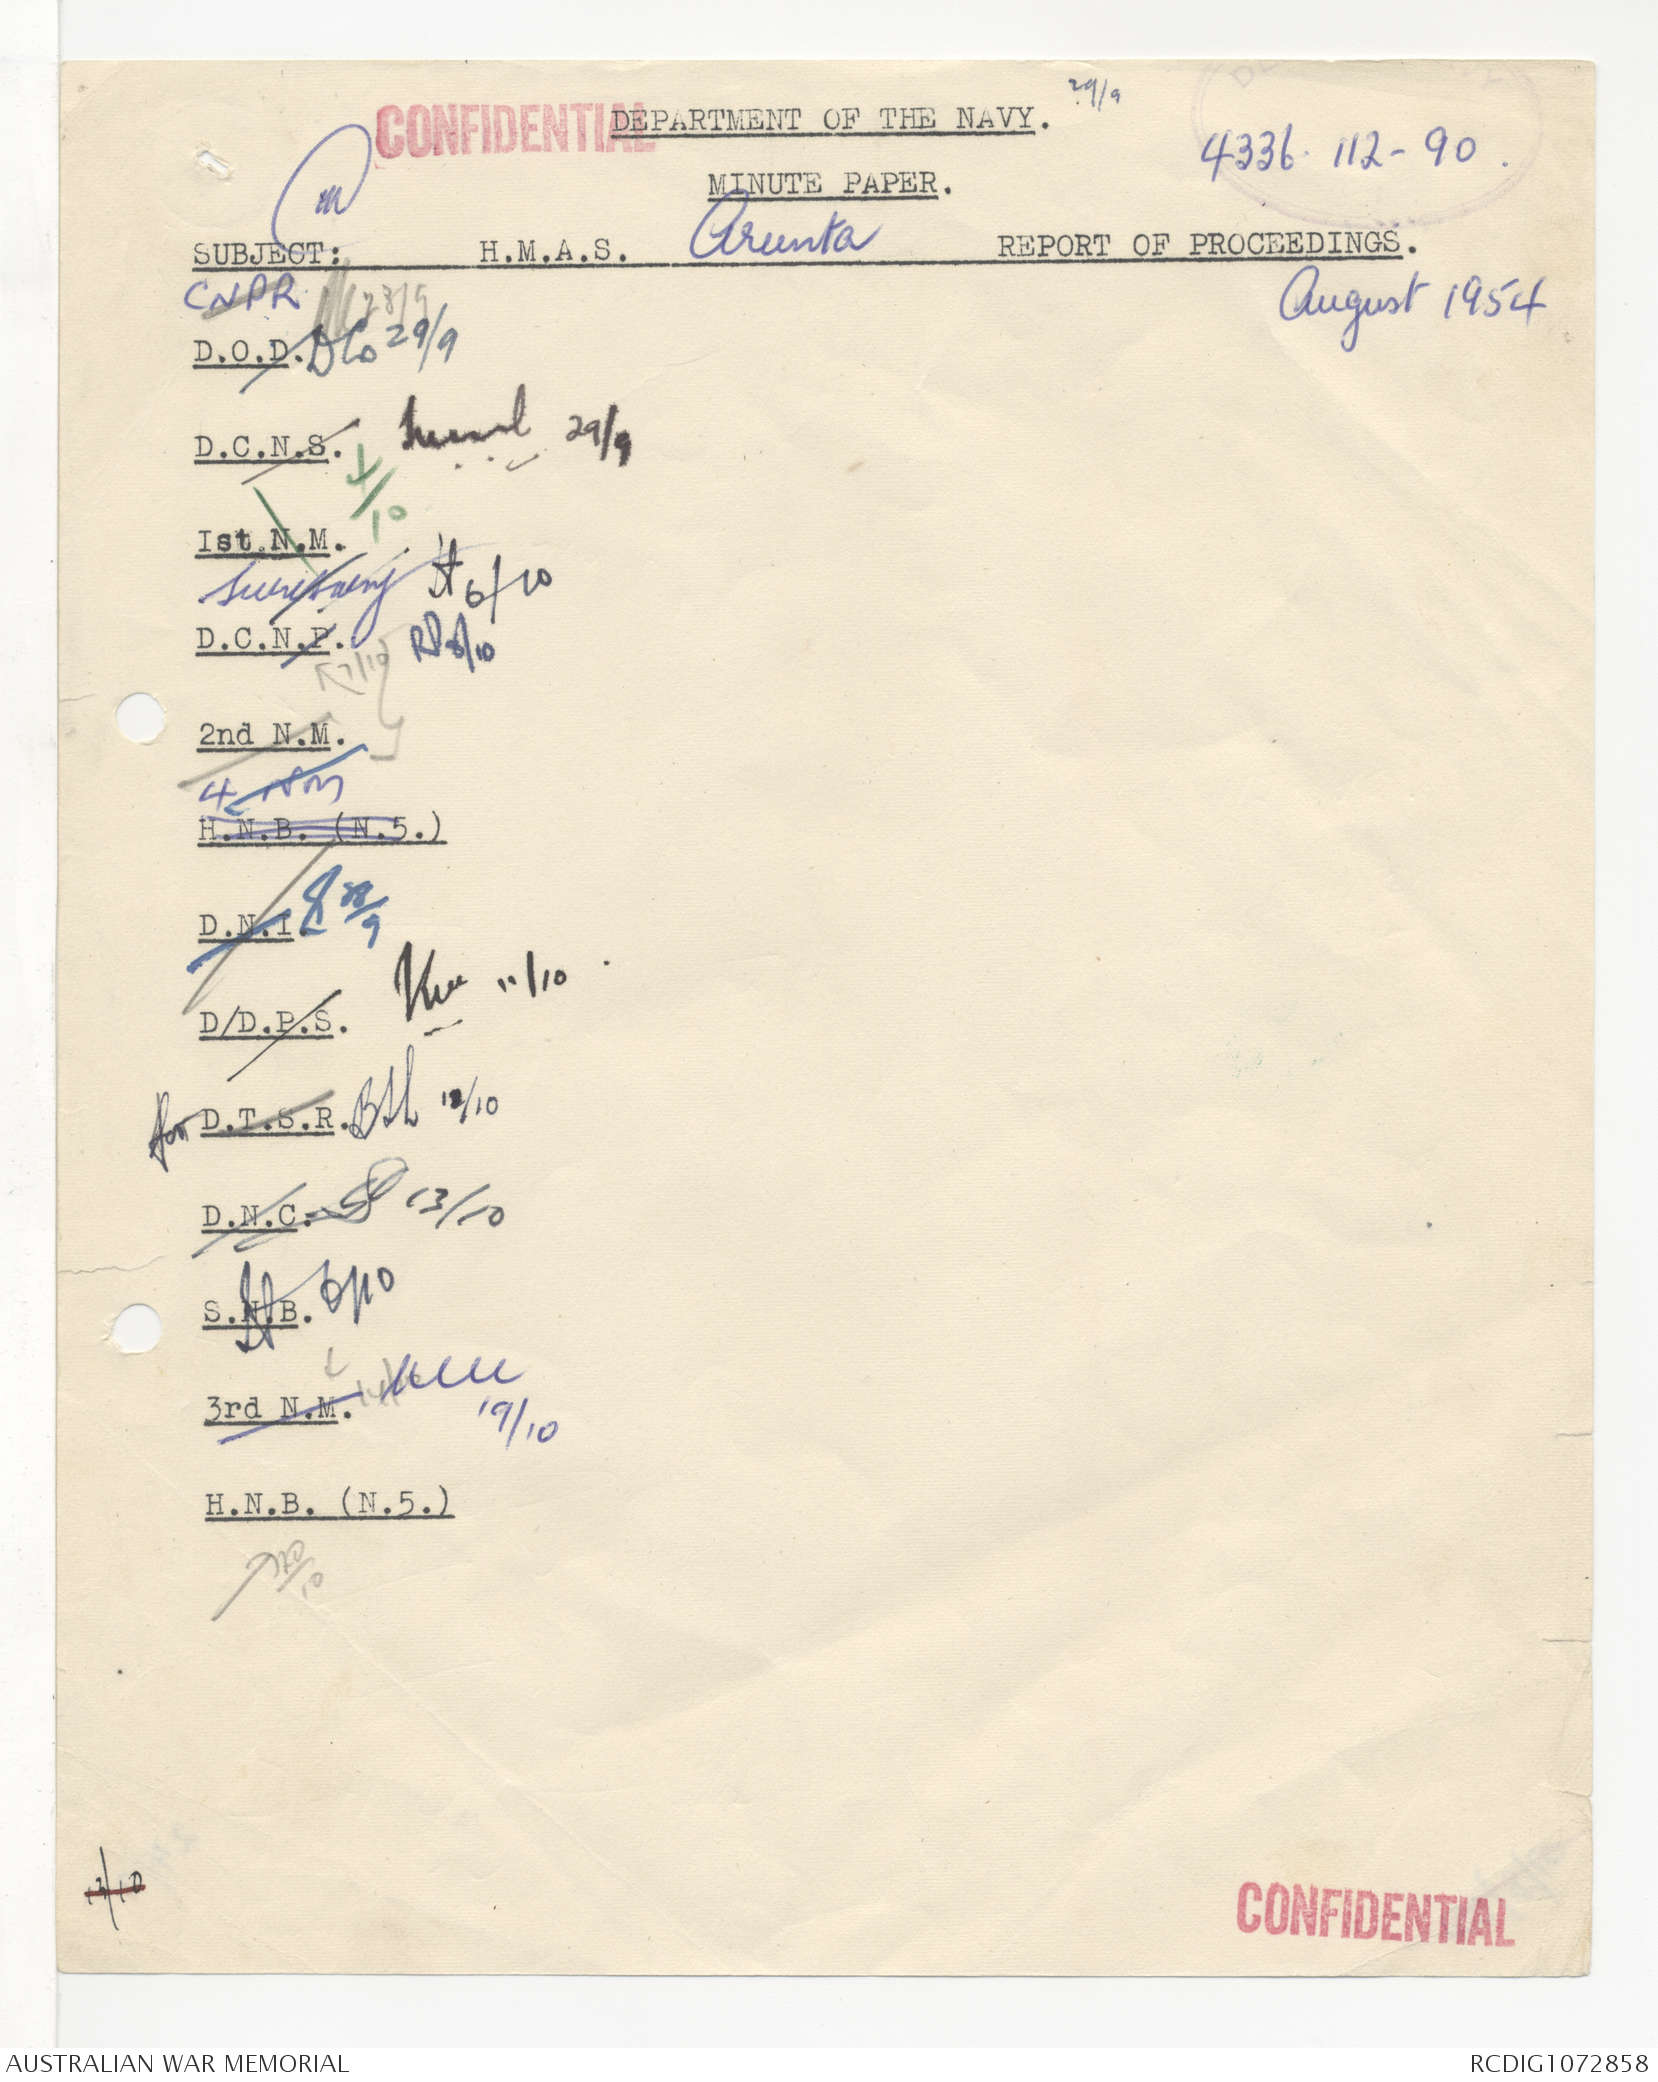 29/9
CONFIDENTIAL
DEPARTMENT OF THE NAVY.
4336. 112-90.
MINUTE PAPER.
SUBJECT: H.M.A.S. Arunta REPORT OF PROCEEDINGS.
August 1954
CNPR 28/9
D.O.D. 29/9
D.C.N.S. 29/9
1/10
1st N.M.
Secretary 6/10
D.C.N.P. 8/10
7/10
2nd N.M.
4 NM
H.N.B. (N.5.)
D.N.I. 28/9
D/D.P.S. 11/10
for D.T.S.R. 12/10
D.N.C. 13/10
S.N.B.
3rd N.M.
19/10
H.N.B. (N.5.)
20/10
13/10
CONFIDENTIAL
AUSTRALIAN WAR MEMORIAL
RCDIG1072858